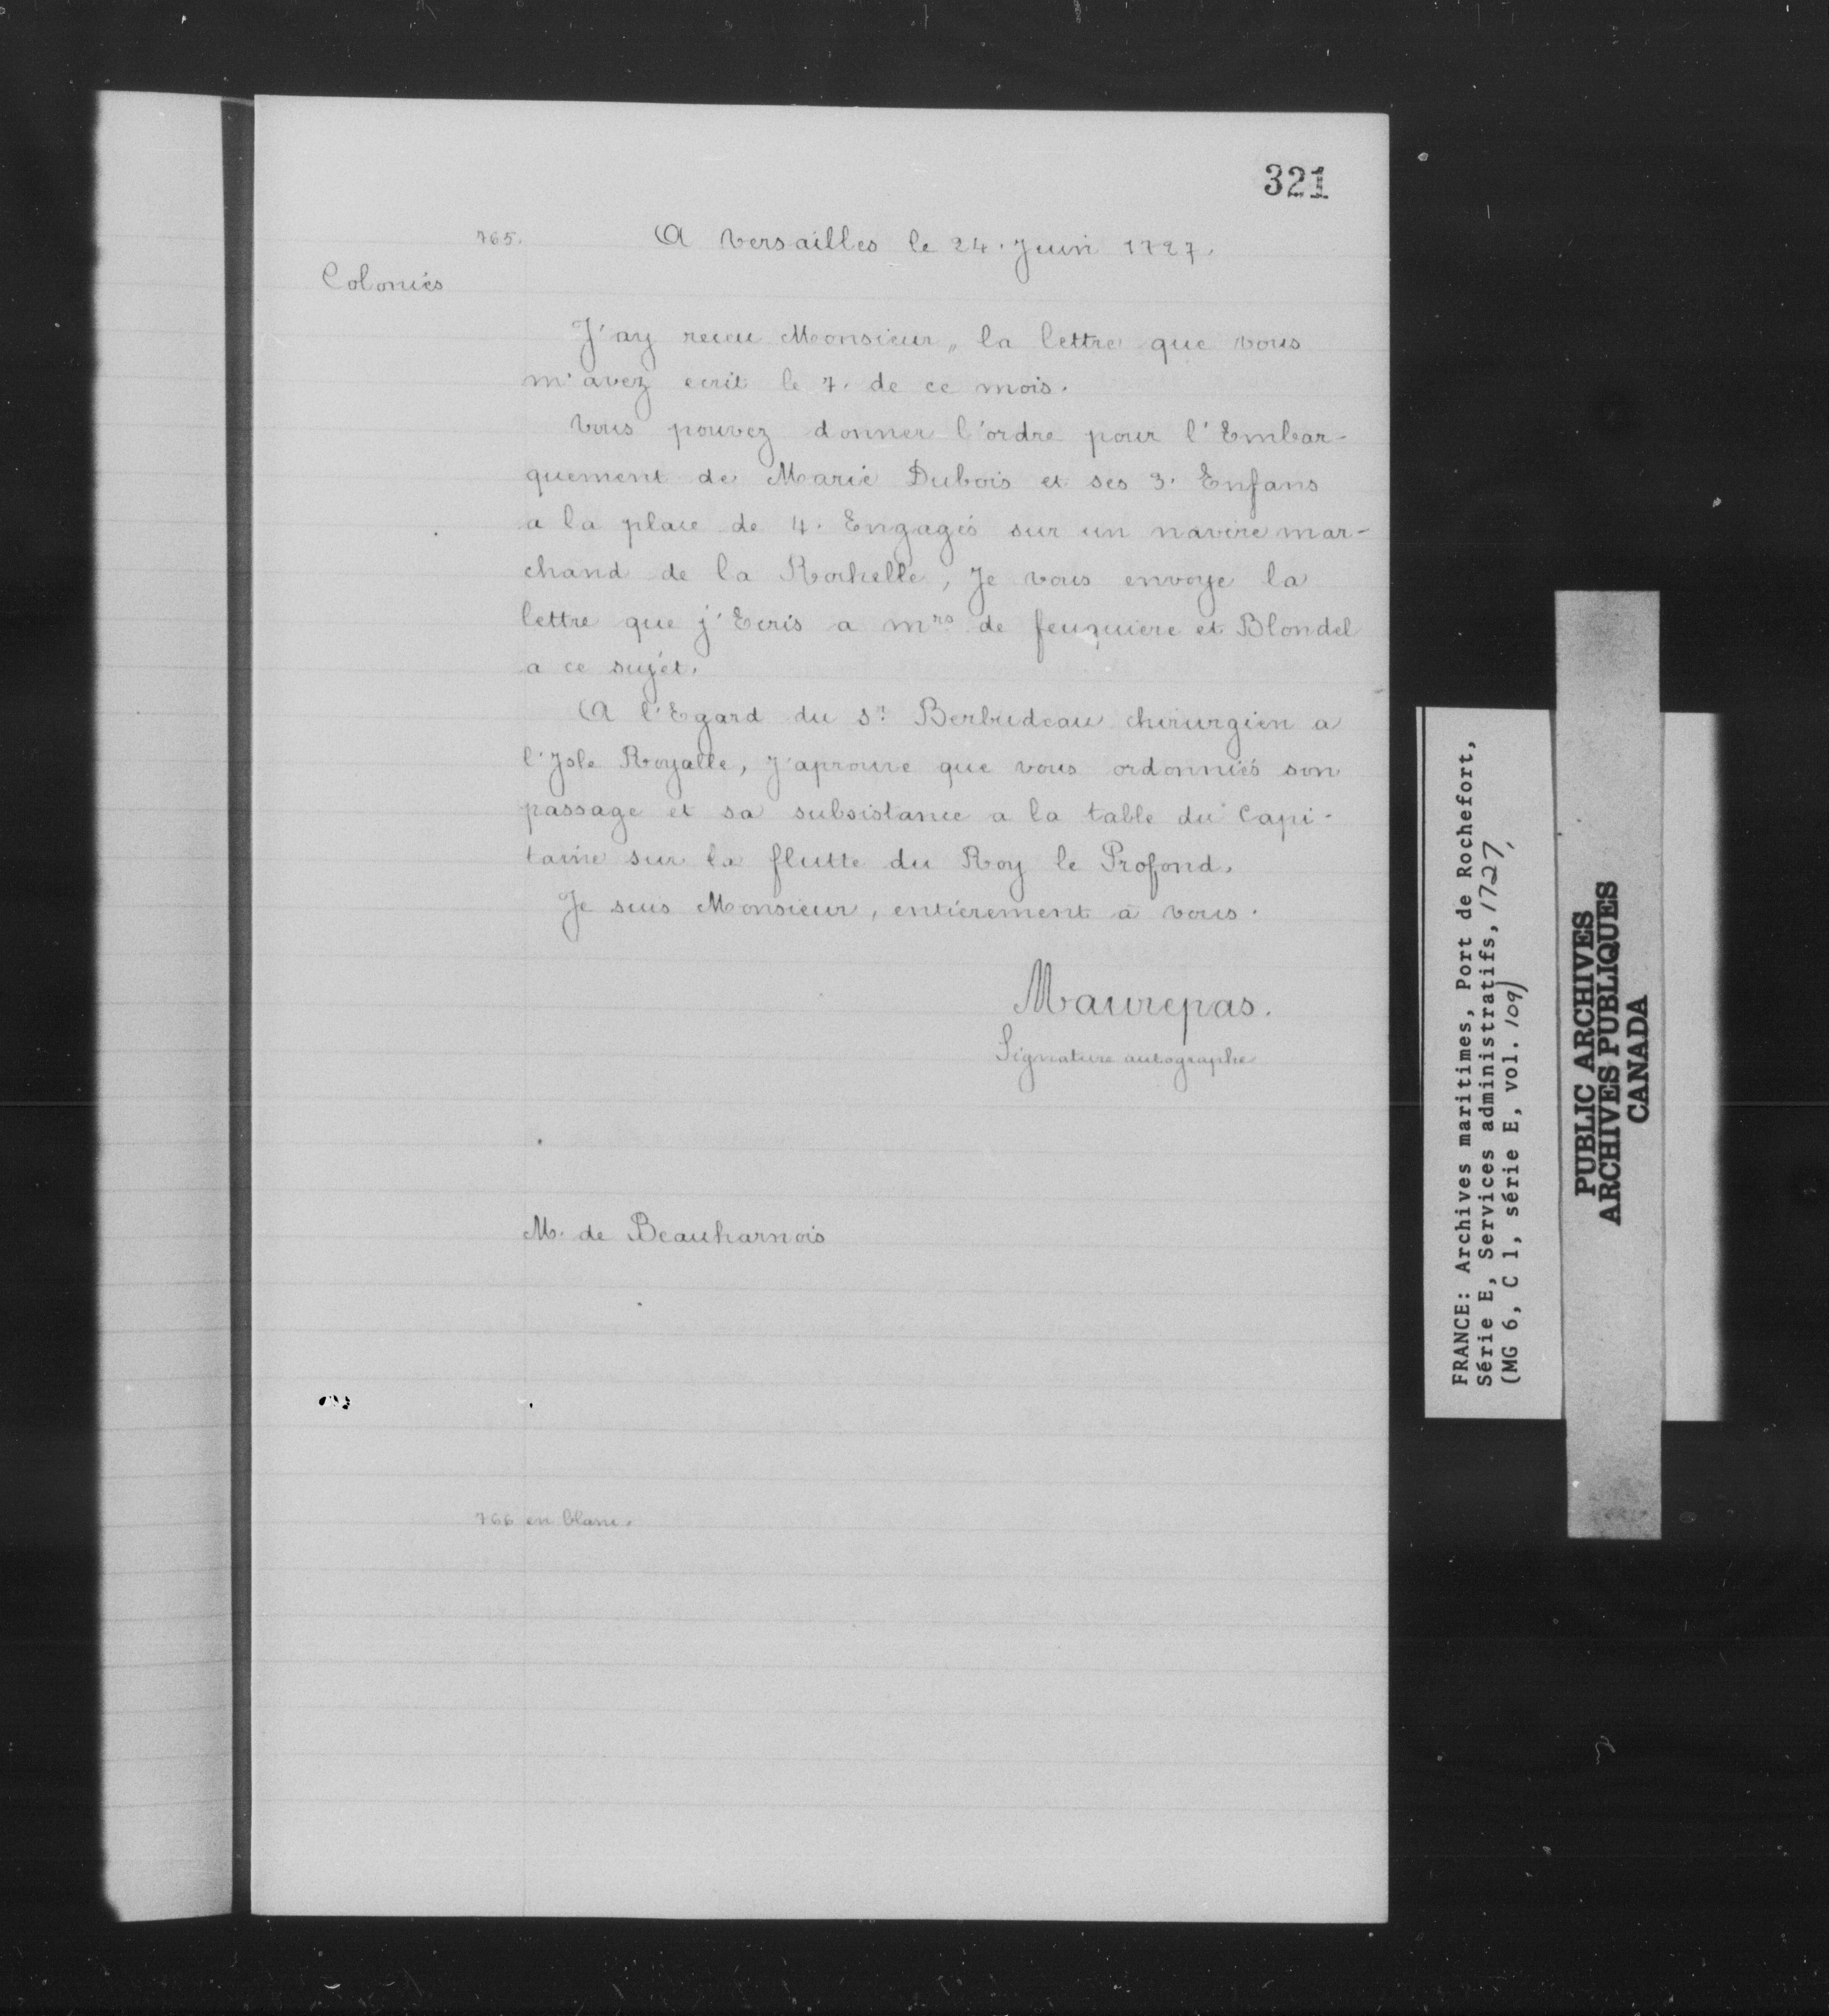 321
765.
A Versailles le 24. Juin 1727.
Colonies
J'ay receu Monsieur, la lettre que vous
m'avez ecrit le 7. de ce mois.
Vous pouvez donner l'ordre pour l'Embar-
quement de Marie Dubois et ses 3. Enfans
a la place de 4. Engagés sur un navire mar-
chand de la Rochelle, Je vous envoye la
lettre que j'Ecris a mrs de feuquiere et Blondel
a ce sujet.
A l'Egard du Sr. Berbudeau chirurgien a
l'Jsle Royalle, J'aprouve que vous ordonniés son
passage et sa subsistance a la table du Capi-
taine sur la flutte du Roy le Profond.
Je suis Monsieur, entièrement à vous.
Maurepas.
Signature autographe
M. de Beauharnois
766 en blanc.
FRANCE: Archives maritimes, Port de Rochefort,
Série E, Services administratifs, 1727,
(MG 6, C 1, série E, vol. 109)
PUBLIC ARCHIVES
ARCHIVES PUBLIQUES
CANADA